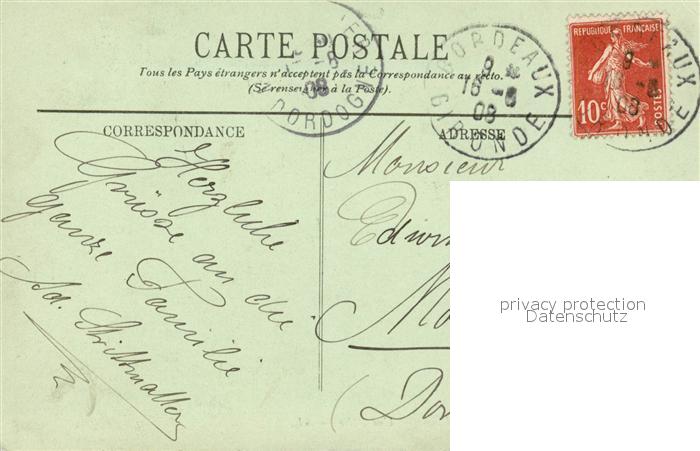 CARTE POSTALE
Tous les Pays étrangers n'acceptent pas la Correspondance au recto.
(Se renseigner à la Poste).
DORDOGNE
08
BORDEAUX
GIRONDE
08
REPUBLIQUE FRANÇAISE
10c
POSTES
CORRESPONDANCE
ADRESSE
Herzliche
Grüsse an die
ganze Familie
Ad. Strittmatter
Monsieur
privacy protection
Datenschutz